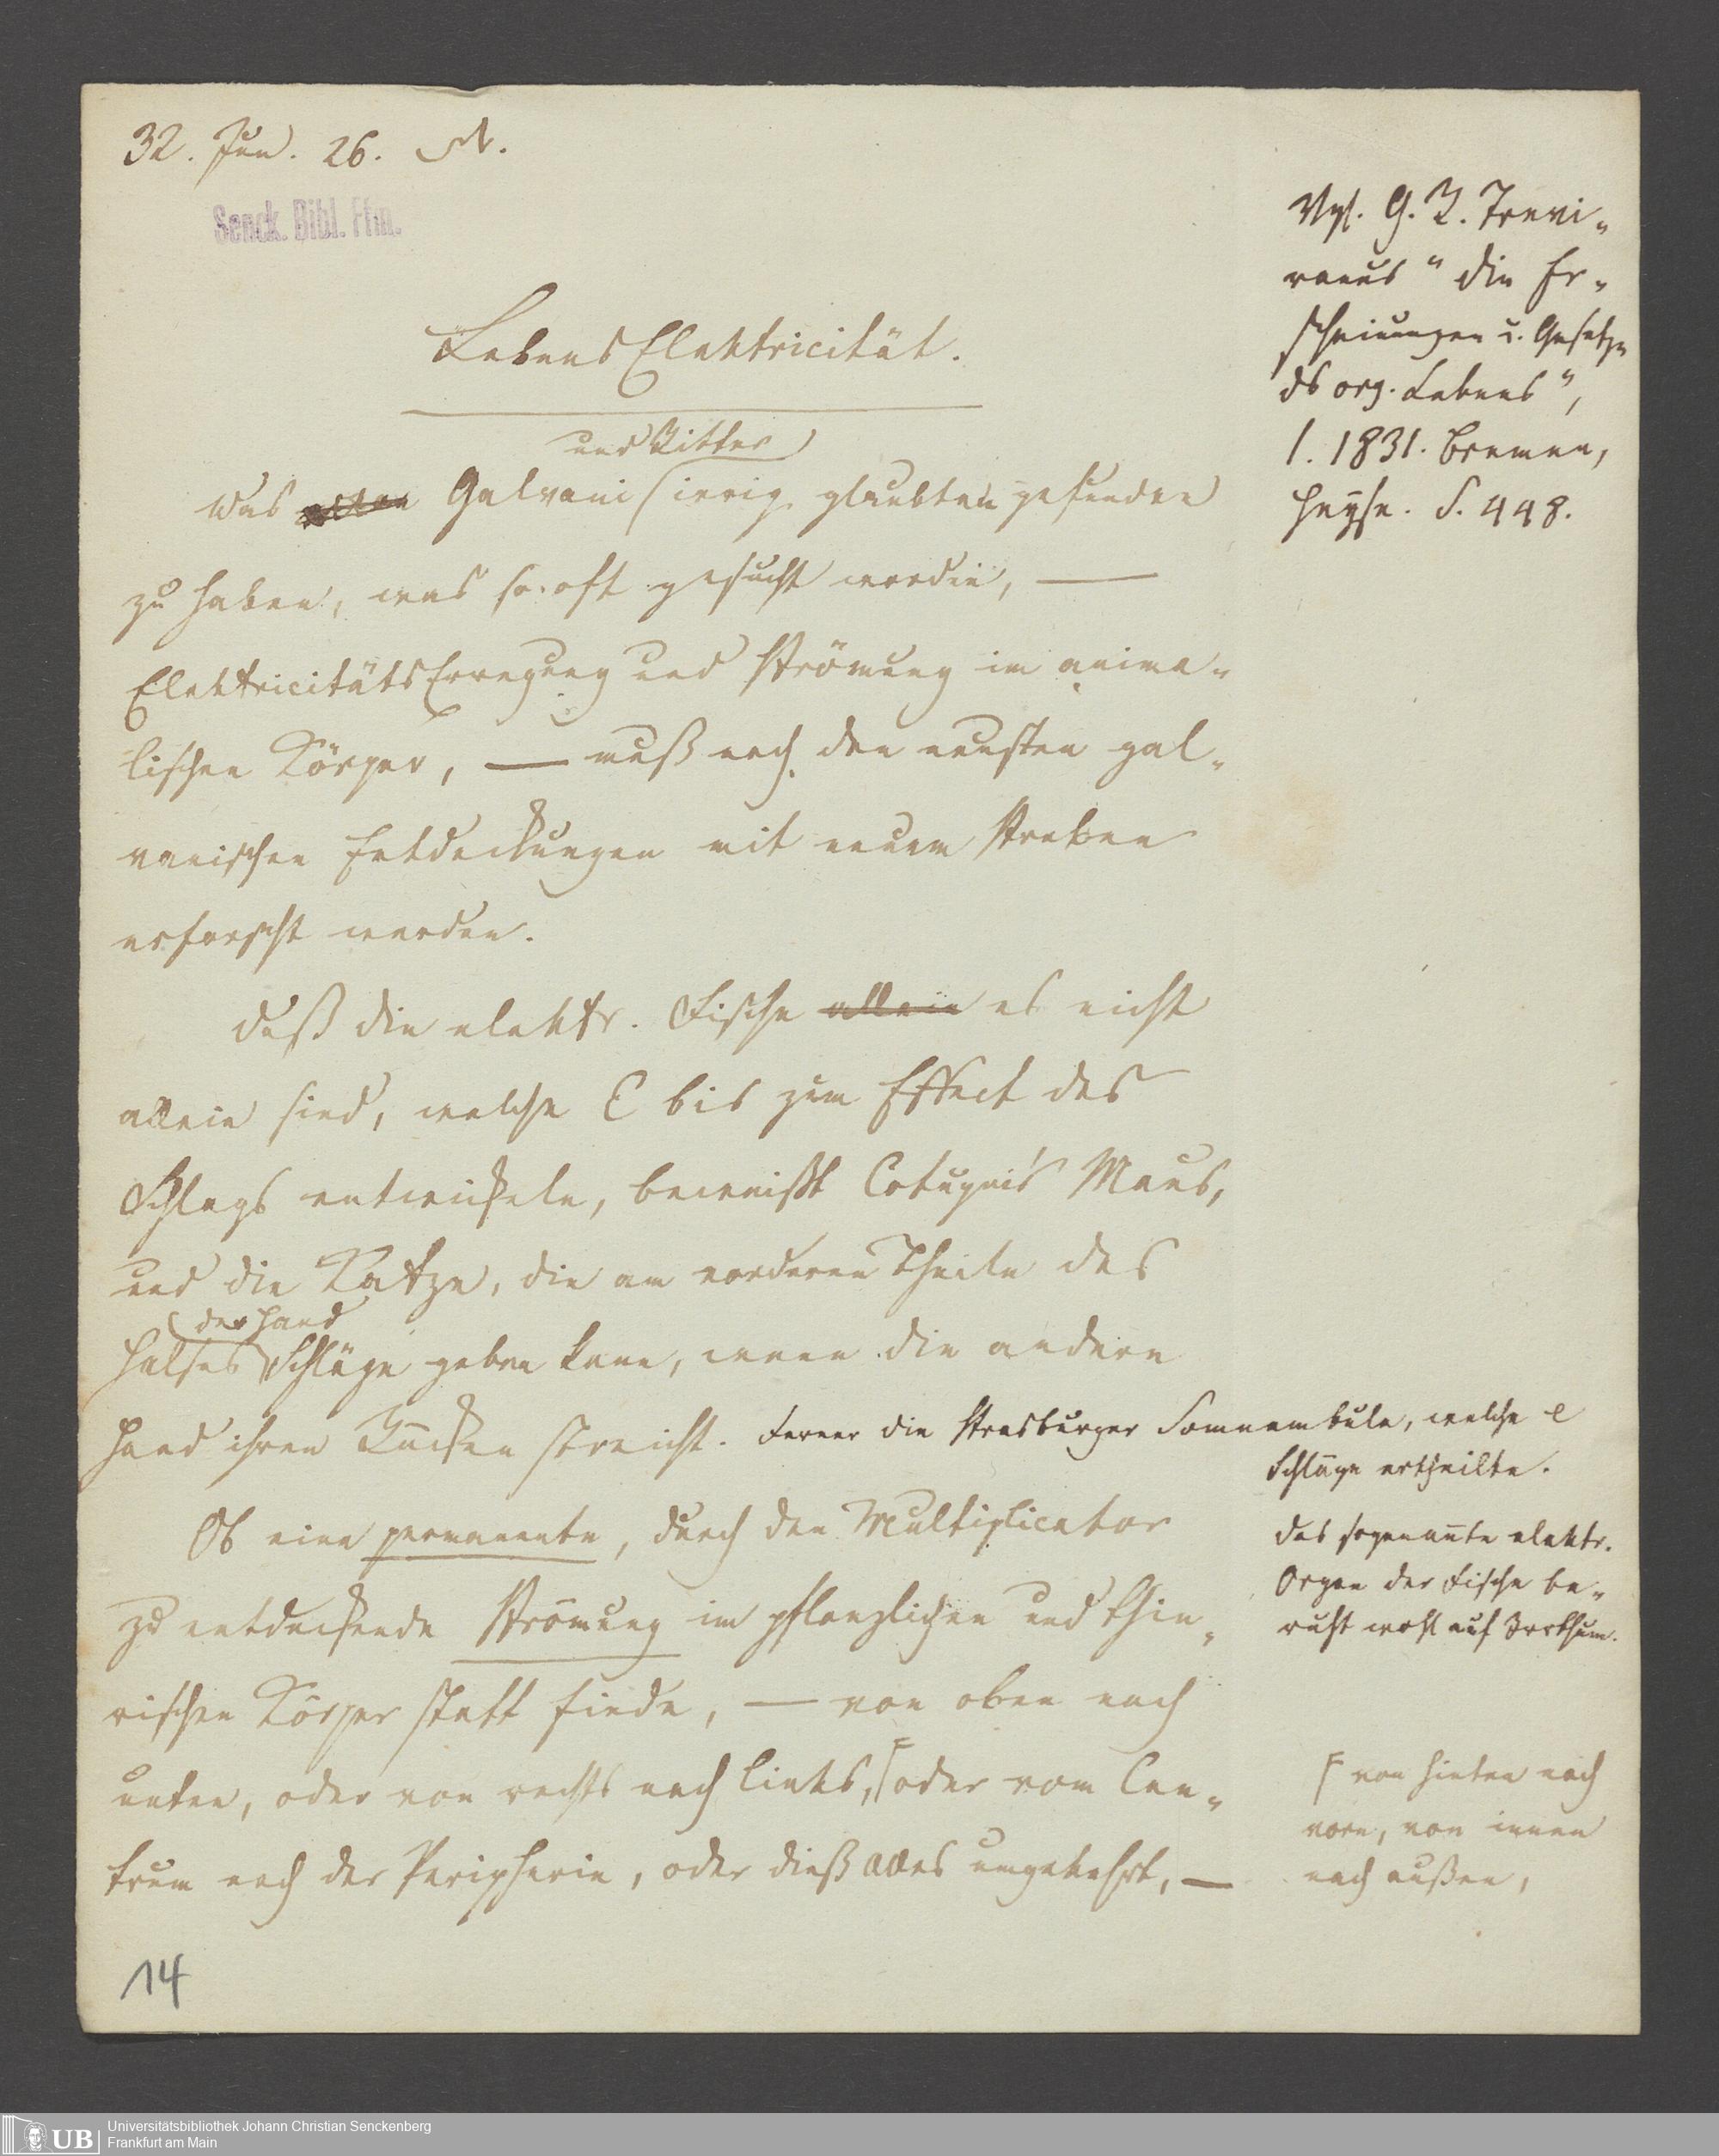 32. Jun. 26.
Senck. Bibl. Ffm.
LebensElektricität.
und Ritter
Was Galvani irrig glaubten gefunden
zu haben, was so oft gesucht worden, —
ElektricitätsErregung und Strömung im anima-
lischen Körper, — muß nach den neusten gal-
vanischen Entdeckungen mit neuem Streben
erforscht werden.
Daß die elektr. Fische allein es nicht
allein sind, welche E bis zum Effect des
Schlags entwickeln, beweißt Cotugni's Maus,
und die Katze, die am vorderen Theile des
der Hand
Halses Schläge geben kann, wenn die andern
Hand ihren Rücken streicht. Ferner die Strasburger Somnambule, welche e
Schläge ertheilte.
Ob eine permanente, durch den Multiplicator
zu entdeckende Strömung im pflanzlichen und thie-
rischen Körper statt finde, — von oben nach
unten, oder von rechts nach links, F oder vom Cen-
trum nach der Peripherie, oder dieß alles umgekehrt, —
Vgl. G. R. Trevi-
ranus "die Er-
scheinungen u. Gesetze
ds org. Lebens",
1. 1831. Bremen,
Heyse. S. 448.
Das sogenannte elektr.
Organ der Fische be-
ruht wohl auf Irrthum.
F von hinten nach
vorn, von innen
nach außen,
14
UB
Universitätsbibliothek Johann Christian Senckenberg
Frankfurt am Main